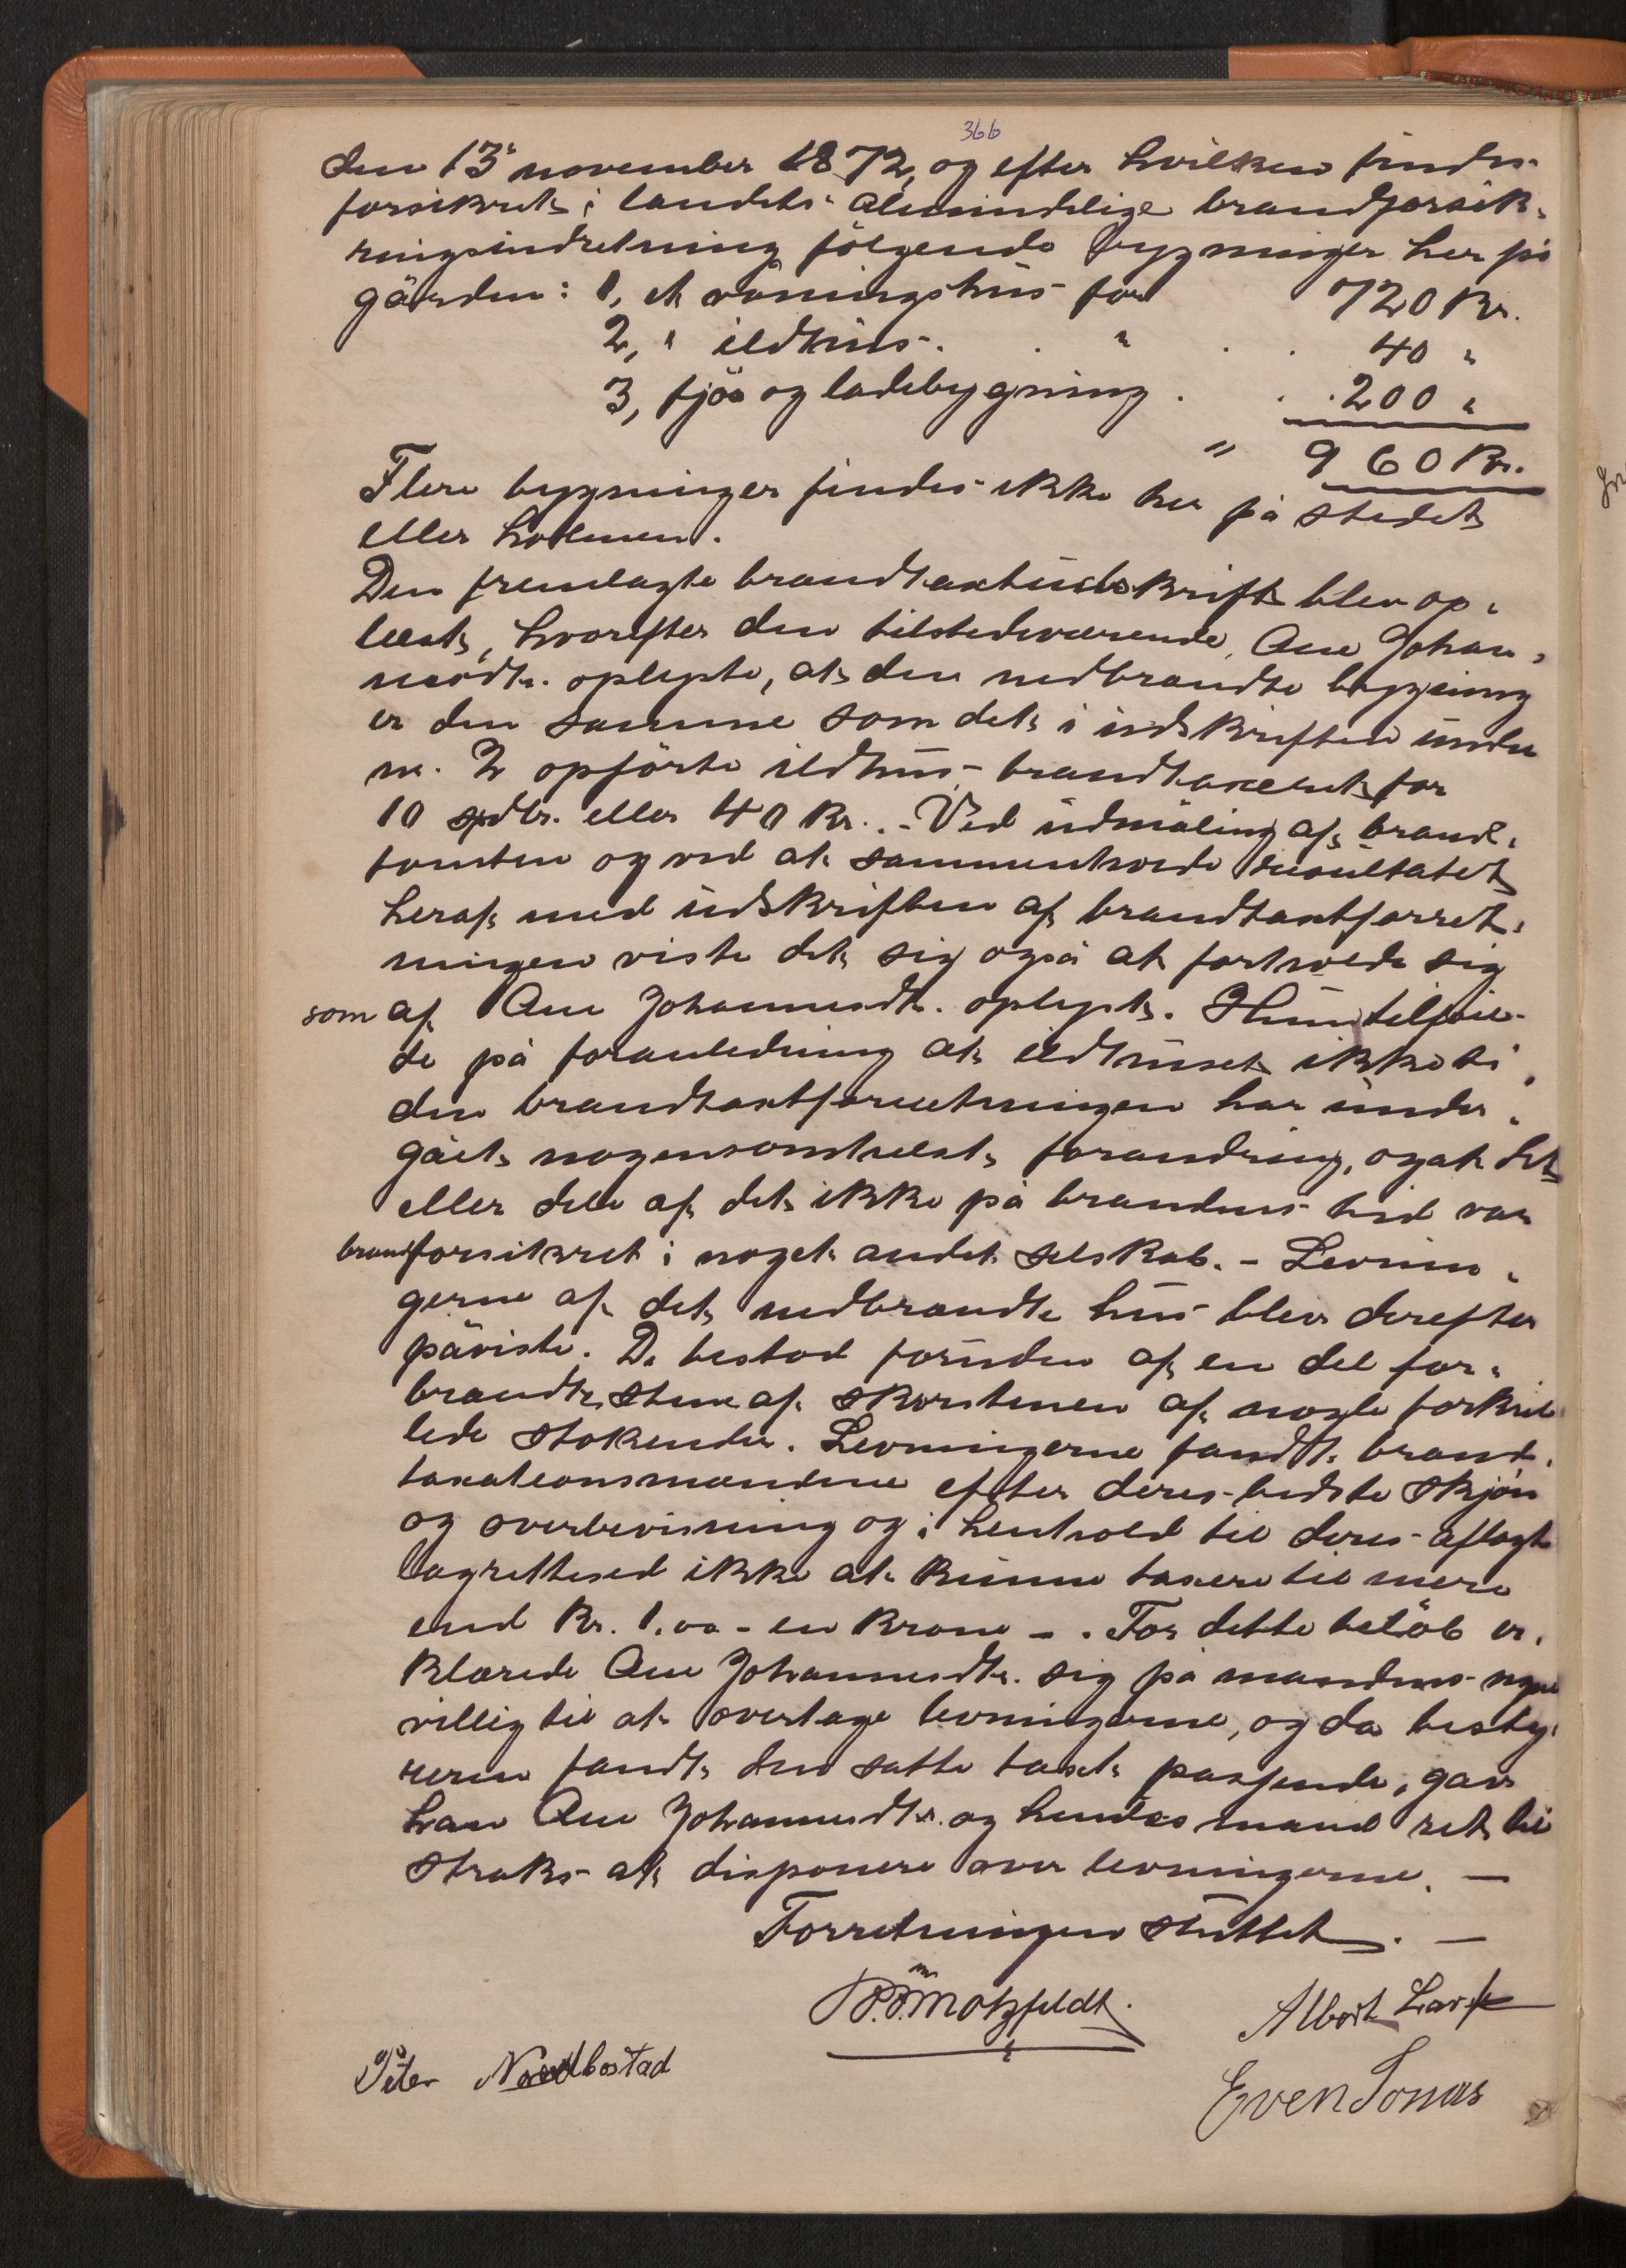 366
den 13 november 1872, og efter hvilken findes
forsikret i landets almindelige brandforsik-
ringsindretning følgende bygninger her på
gården: 1, et våningshus for 720 Kr.
2, " ildhus . . " . . 40 "
3, fjös og ladebygning . . . 200 "
" 960 Kr.
Flere bygninger findes ikke her på stedet
eller holmen.
Den fremlagte brandtaxtudskrift blev op-
læst, hvorefter den tilstedeværende Ane Johan-
nesdtr. oplyste, at den nedbrandte bygning
er den samme som det i udskriften under
nr. 2 opförte ildhus brandtaxeret for
10 spdlr. eller 40 Kr. - Ved udmåling af brand-
tomten og ved at sammenholde resultatet
heraf med udskriften af brandtaxtforret-
ningen viste det sig også at forholde sig
som af Ane Johannesdtr. oplyst. Hun tilföie-
de på foranledning at ildhuset ikke si-
den brandtaxtforretningen har under-
gået nogensomhelst forandring, og at det
eller dele af det ikke på brandens tid var
brandforsikret i noget andet selskab. - Levnin-
gerne af det nedbrandte hus blev derefter
påviste. De bestod foruden af en del for-
brandte stene af skorstenen af nogle forkul-
lede stokender. Levningerne fandt brand-
taxationsmændene efter deres bedste skjön
og overbevisning og i henhold til deres aflagte
lagrettesed ikke at kunne taxere til mere
end Kr. 1.00 - en krone - . For dette belöb er-
klærede Ane Johannesdtr. sig på mandens vegne
villig til at overtage levningerne, og da besty-
reren fandt den satte taxt passende, gav
han Ane Johannesdtr. og hendes mand ret til
straks at disponere over levningerne. -
Forretningen sluttet. -
Motzfeldt.
Albert
Peter Nordbostad
Even Jonas